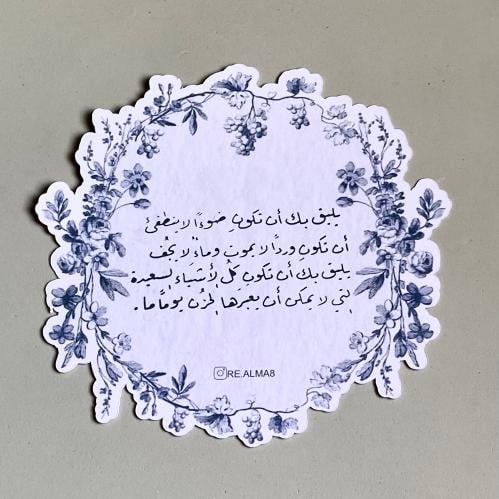 يليق بك أن تكونِ ضوءًا لا ينطفئ
أن تكونِ وردًا لا يموت وماءً لا يجف
يليق بك أن تكونِ كل الأشياء السعيدة
التي لا يمكن أن يعبرها الحزن يومًا ما.
RE.ALMA8